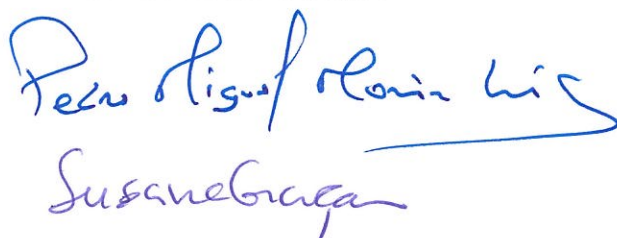 Pedro Miguel Moniz Luís
Susana Graça